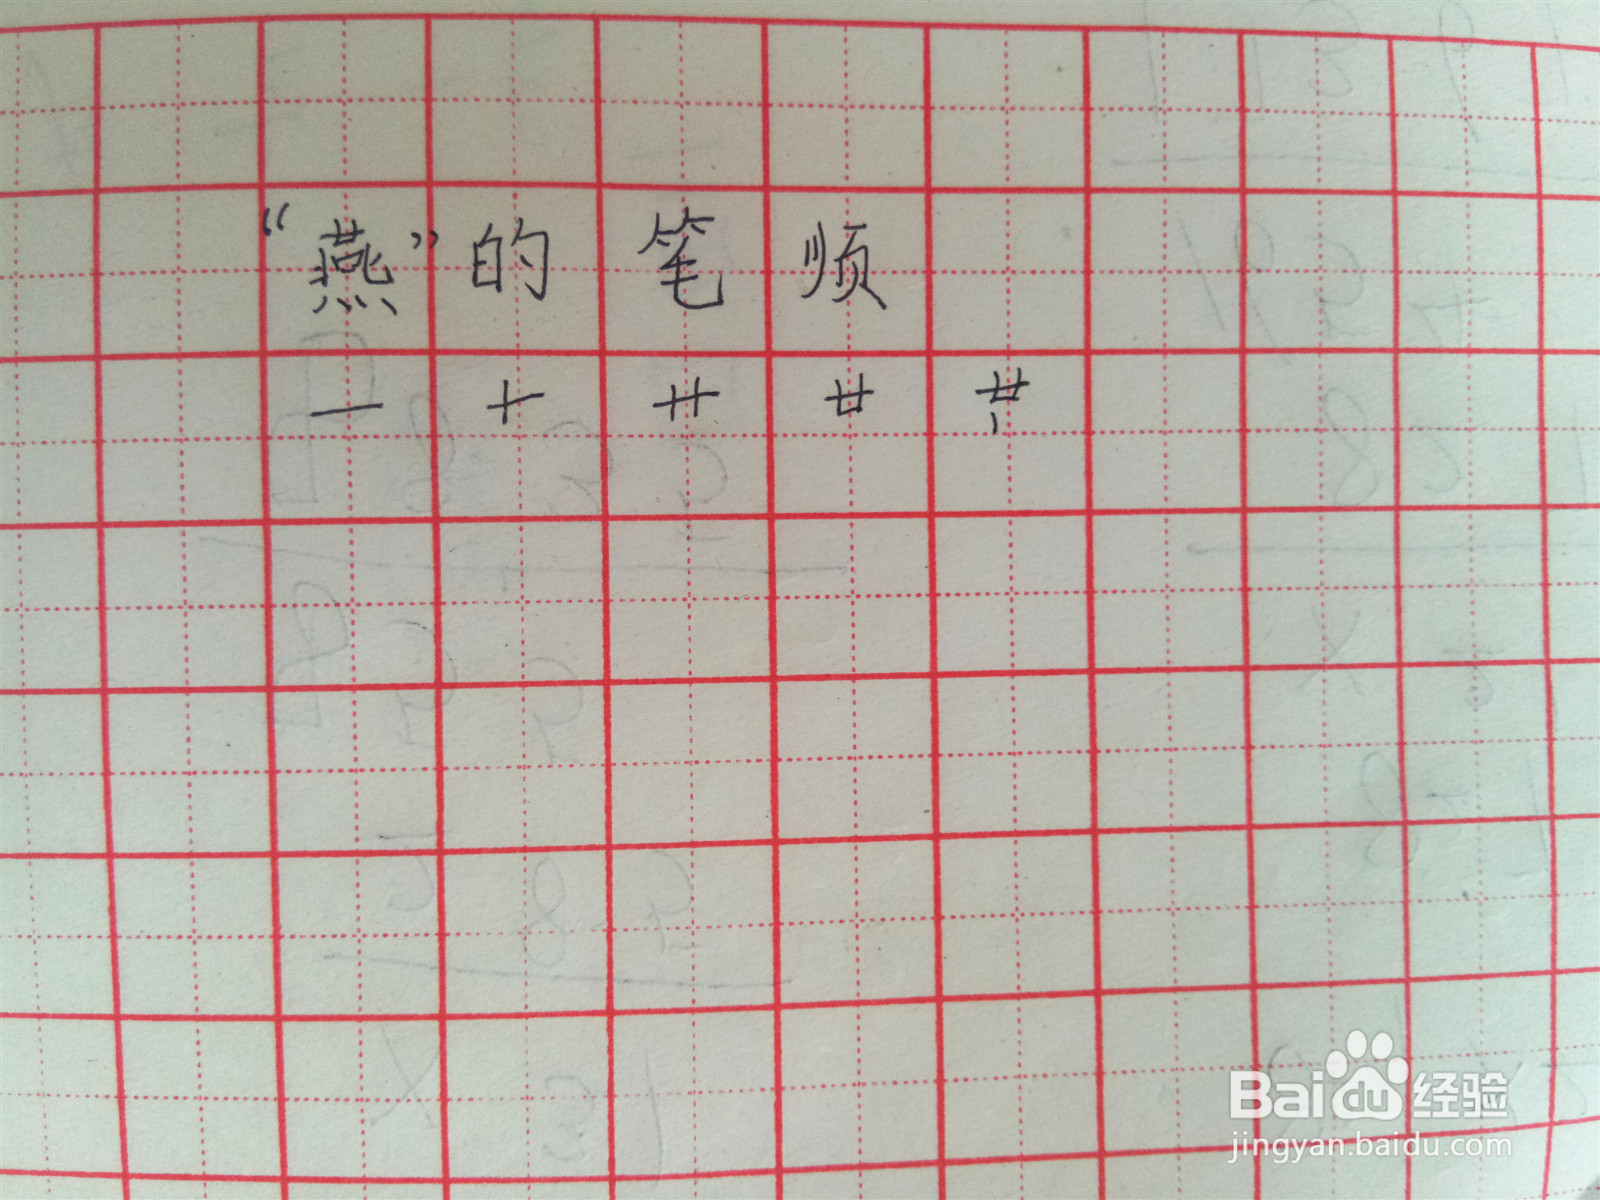 “燕”的笔顺
一 十 卄 廿
Bai du 经验
jingyan.baidu.com